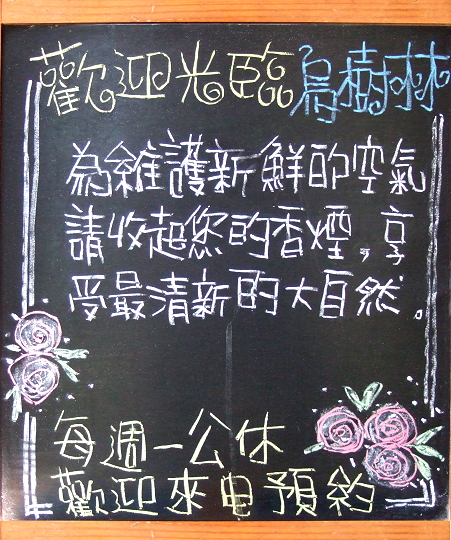 歡迎光臨烏樹林
為維護新鮮的空氣
請收起您的香煙,享
受最清新的大自然。
每週一公休
歡迎來电預約